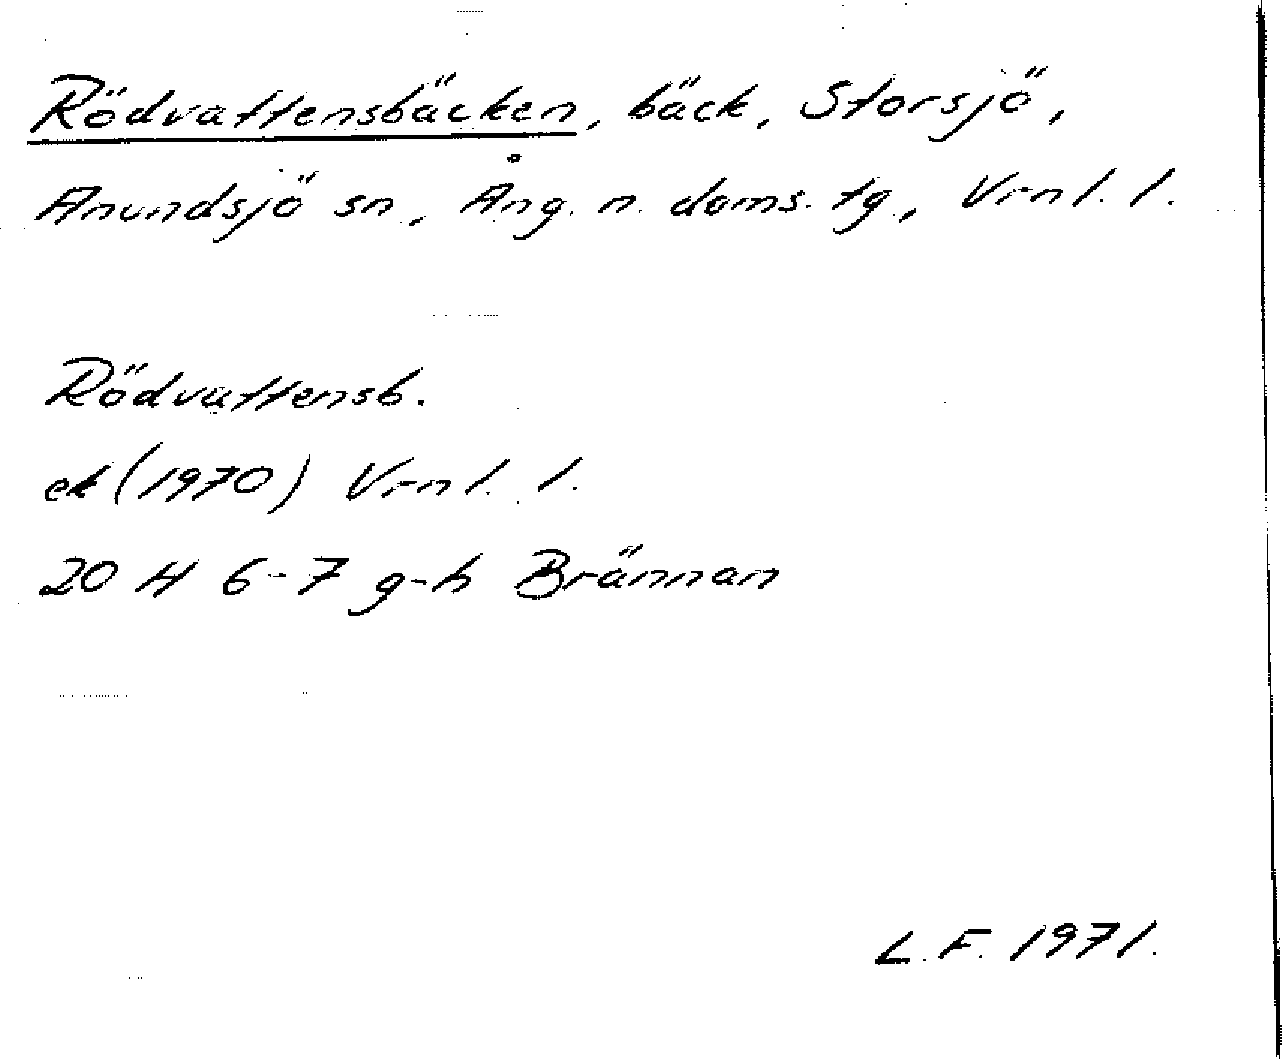 Rödvattensbäcken, bäck, Storsjö,
Anundsjö sn, Ång. n. doms. tg., Vrnl. l.
Rödvattensb.
ek (1970) Vrnl. l.
20 H 6-7 g-h Brännan
L.F. 1971.